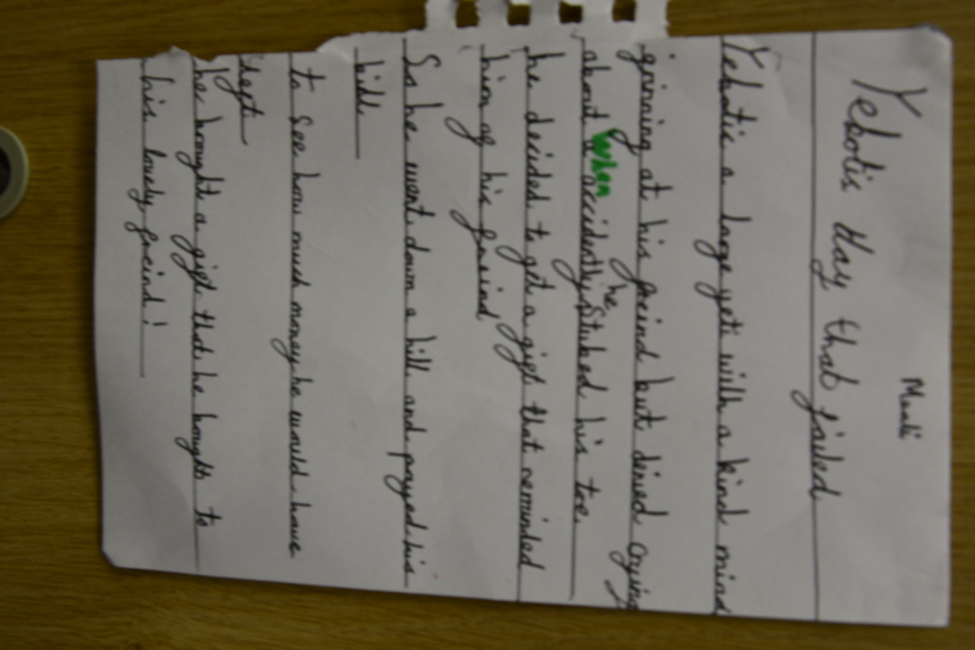 Musti
Yebotis Hay that failed
Yebotic a large yeti with a kind mind
grinning at his freind but denied crying
about when he accidently Stubed his toe.
he decided to get a gift that reminded
him of his freind
So he went down a hill and payed his
bill
to See how much money he would have
left
he brought a gift that he bought to
his lovely freind!